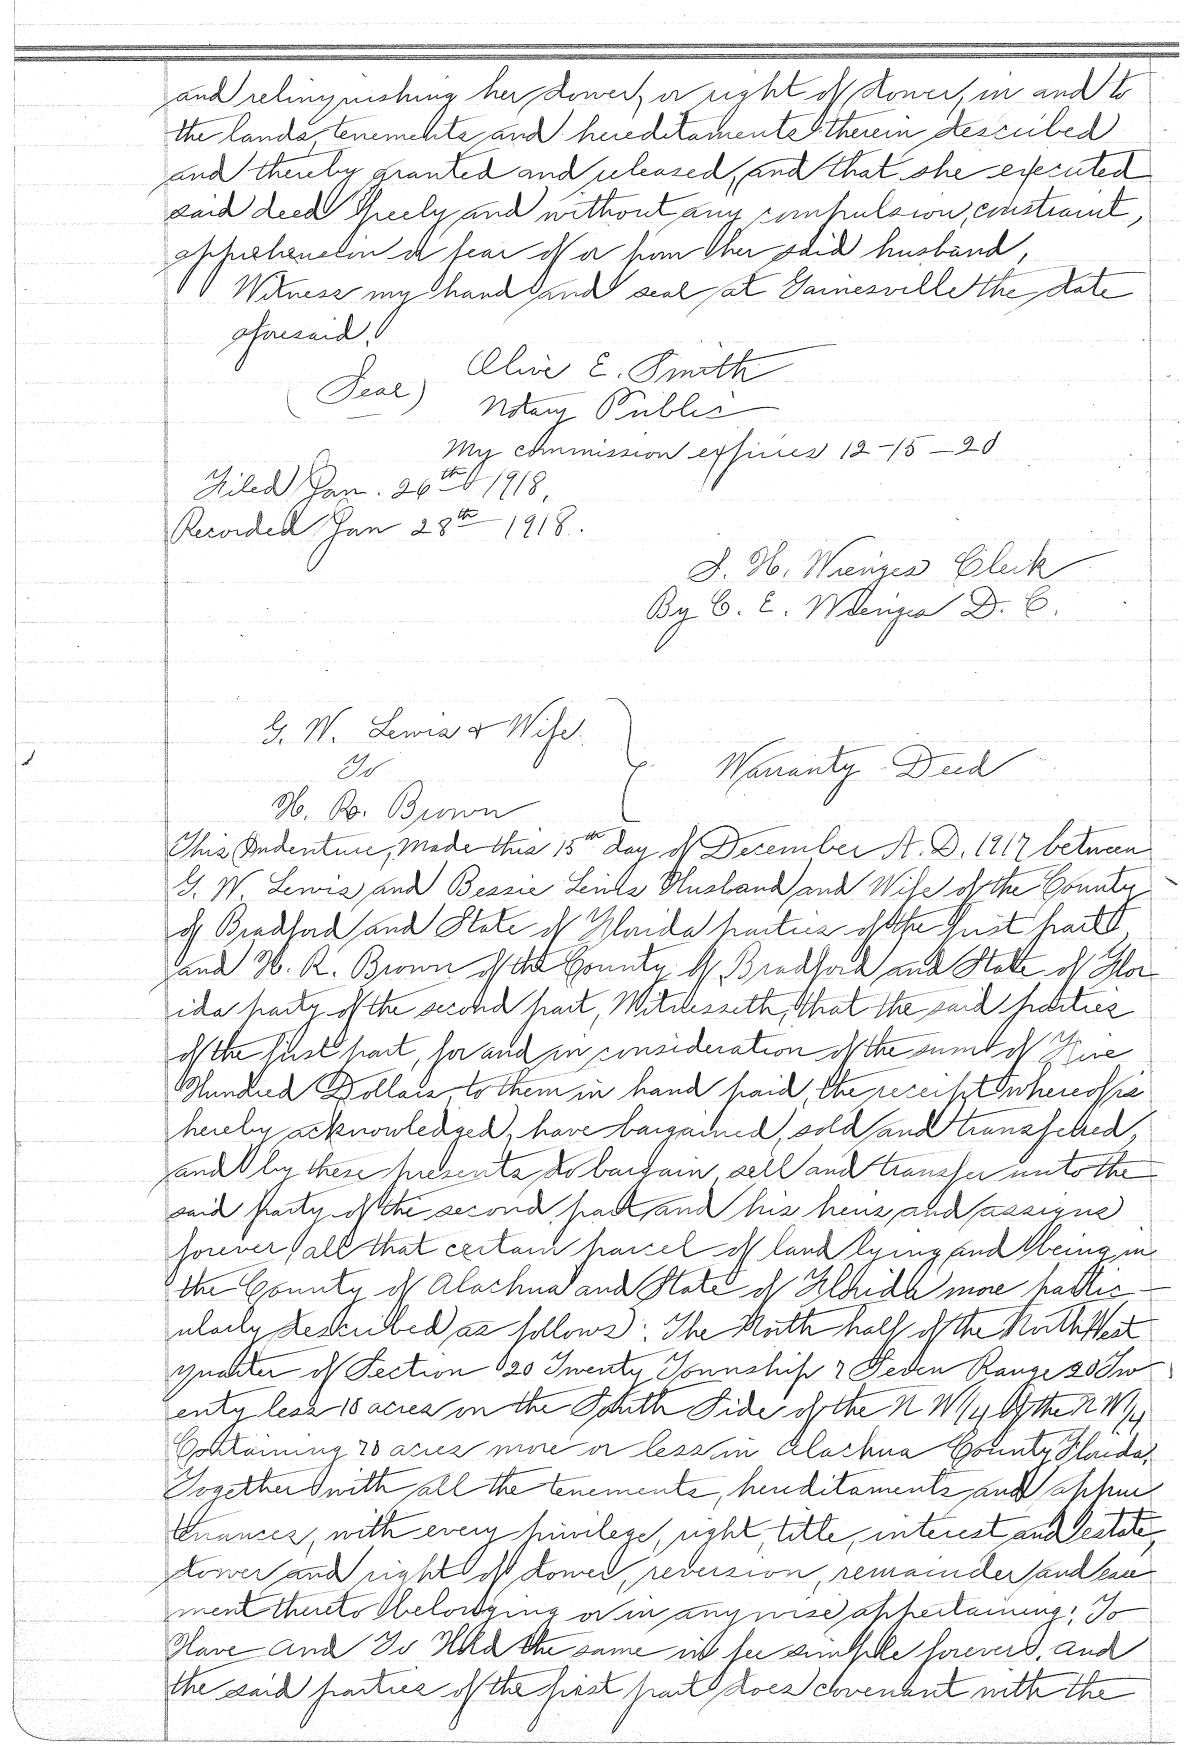 and relinquishing her dower, or right of dower, in and to
the lands, tenements and hereditaments therein described
and thereby granted and released, and that she executed
said deed freely and without any compulsion, constraint,
apprehension or fear of or from her said husband,
Witness my hand and seal at Gainesville the date
aforesaid.
Olive E. Smith
(Seal)
Notary Public
My commission expires 12-15-20
Filed Jan. 26th 1918,
Recorded Jan 28th 1918.
S. H. Wienges Clerk
By C. E. Wienges D. C.
G. W. Lewis & Wife
To
Warranty Deed
H. R. Brown
This Indenture, Made this 15th day of December A. D. 1917 between
G. W. Lewis and Bessie Lewis Husband and Wife of the County
of Bradford and State of Florida parties of the first part
and H. R. Brown of the County of Bradford and State of Flor
ida party of the second part, Witnesseth, that the said parties
of the first part, for and in consideration of the sum of Five
Hundred Dollars to them in hand paid, the receipt whereof is
hereby acknowledged, have bargained, sold and transferred,
and by these presents do bargain, sell and transfer unto the
said party of the second part and his heirs and assigns
forever, all that certain parcel of land lying and being in
the County of Alachua and State of Florida more partic-
ularly described as follows: The North half of the North West
quarter of Section 20 Twenty Township 7 Seven Range 20 Tw
enty less 10 acres on the South Side of the N W 1/4 of the N.W. 1/4
Containing 70 acres more or less in Alachua County Florida,
Together with all the tenements, hereditaments and appur
tenances, with every privilege, right, title, interest and estate,
dower and right of dower, reversion, remainder and ease
ment thereto belonging or in anywise appertaining: To
Have and To Hold the same in fee simple forever. and
the said parties of the first part does covenant with the